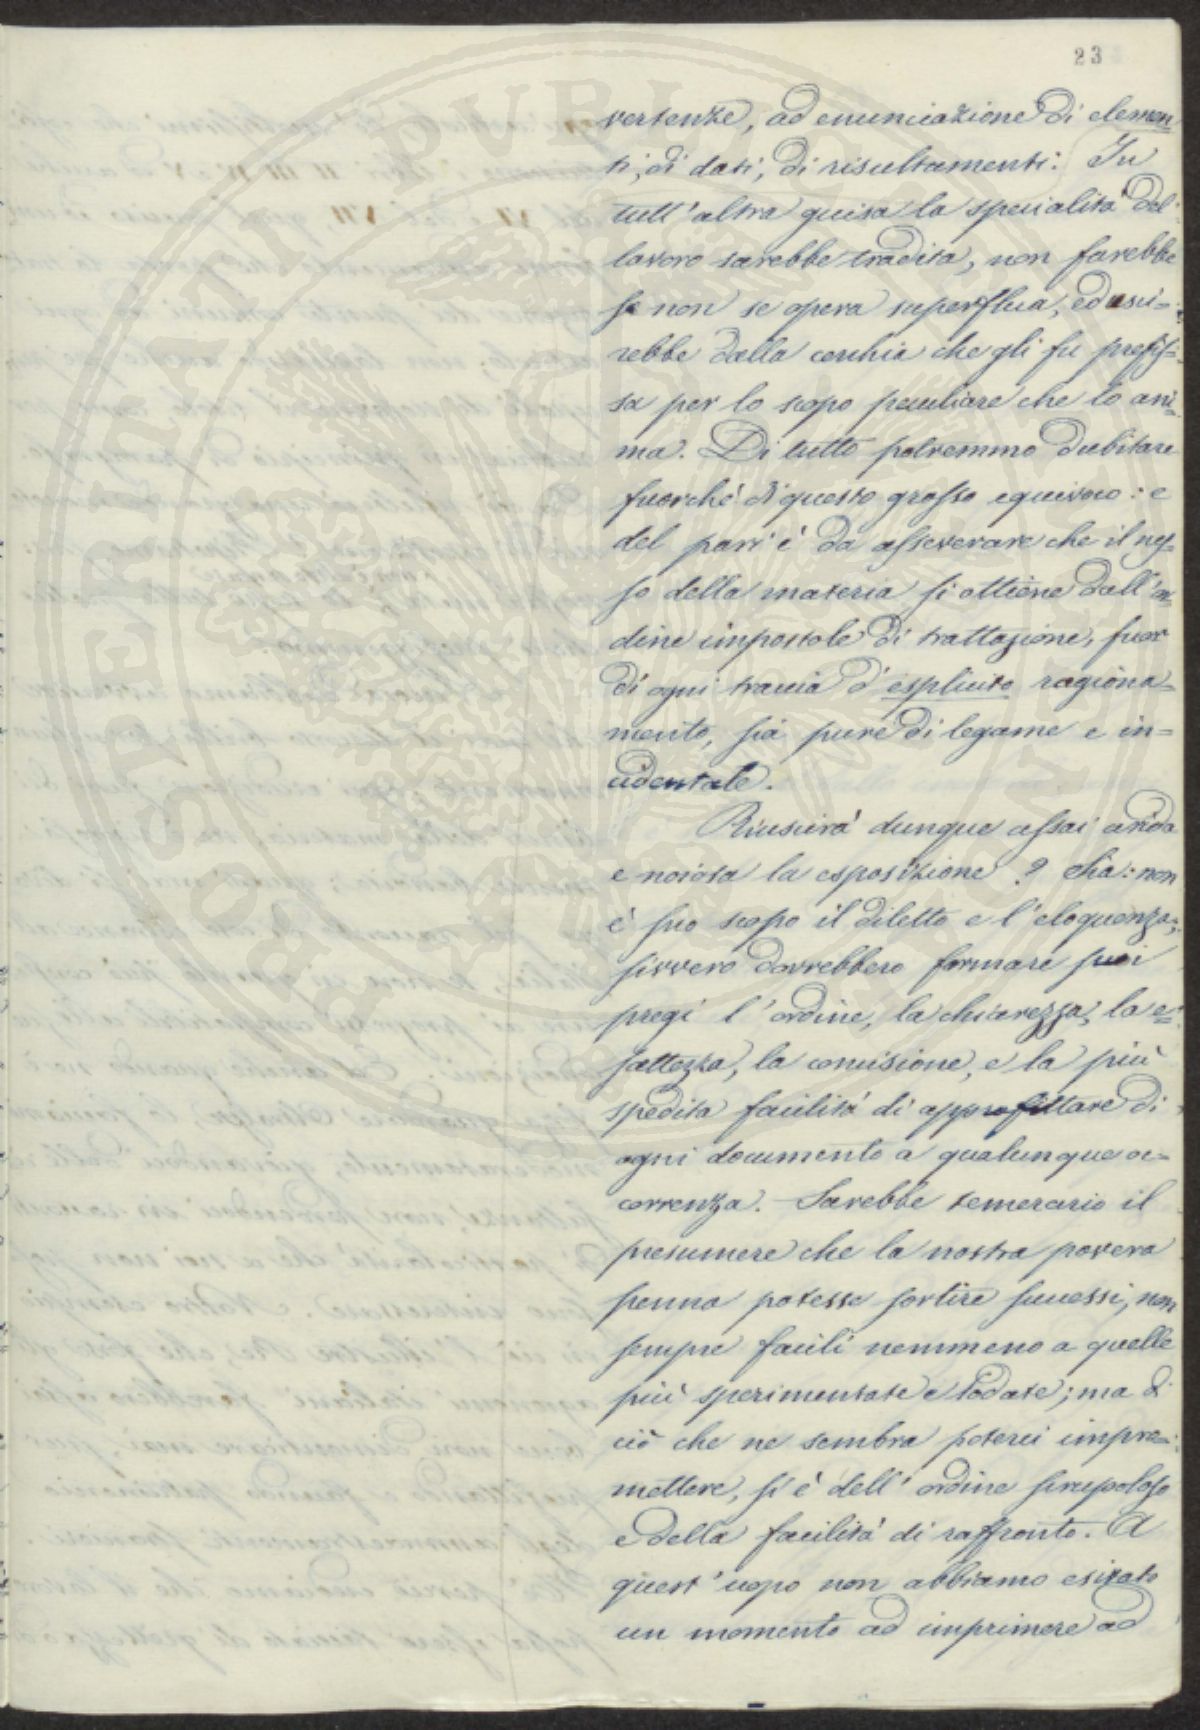 23
vertenze, ad enunciazione di elemen
ti, di dati, di risultamenti. In
tutt'altra guisa la specialità del
lavoro sarebbe tradita, non farebbe
se non se opera superflua, ed usci=
rebbe dalla cerchia che gli fu prefis=
sa per lo scopo peculiare che lo ani=
ma. Di tutto potremmo dubitare
fuorché di questo grosso equivoco: e
del pari è da asseverare che il nes=
so della materia si ottiene dall'or
dine impostole di trattazione, fuor
di ogni traccia d'esplicito ragiona=
mento, sia pure di legame e in=
cidentale.
Riuscirà dunque assai arida
e noiosa la esposizione? Chà: non
è suo scopo il diletto e l'eloquenza;
sivvero dovrebbero formare suoi
pregi l'ordine, la chiarezza, la e=
sattezza, la concisione, e la più
spedita facilità di approfittare di
ogni documento a qualunque oc=
correnza. Sarebbe temerario il
presumere che la nostra povera
penna potesse sortire successi, non
sempre facili nemmeno a quelle
più sperimentate e lodate; ma di
ciò che ne sembra poterci impro=
mettere, si è dell'ordine scrupoloso
e della facilità di raffronto. A
quest'uopo non abbiamo esitato
un momento ad imprimere ad
PROSPERITATI PVBLICAE